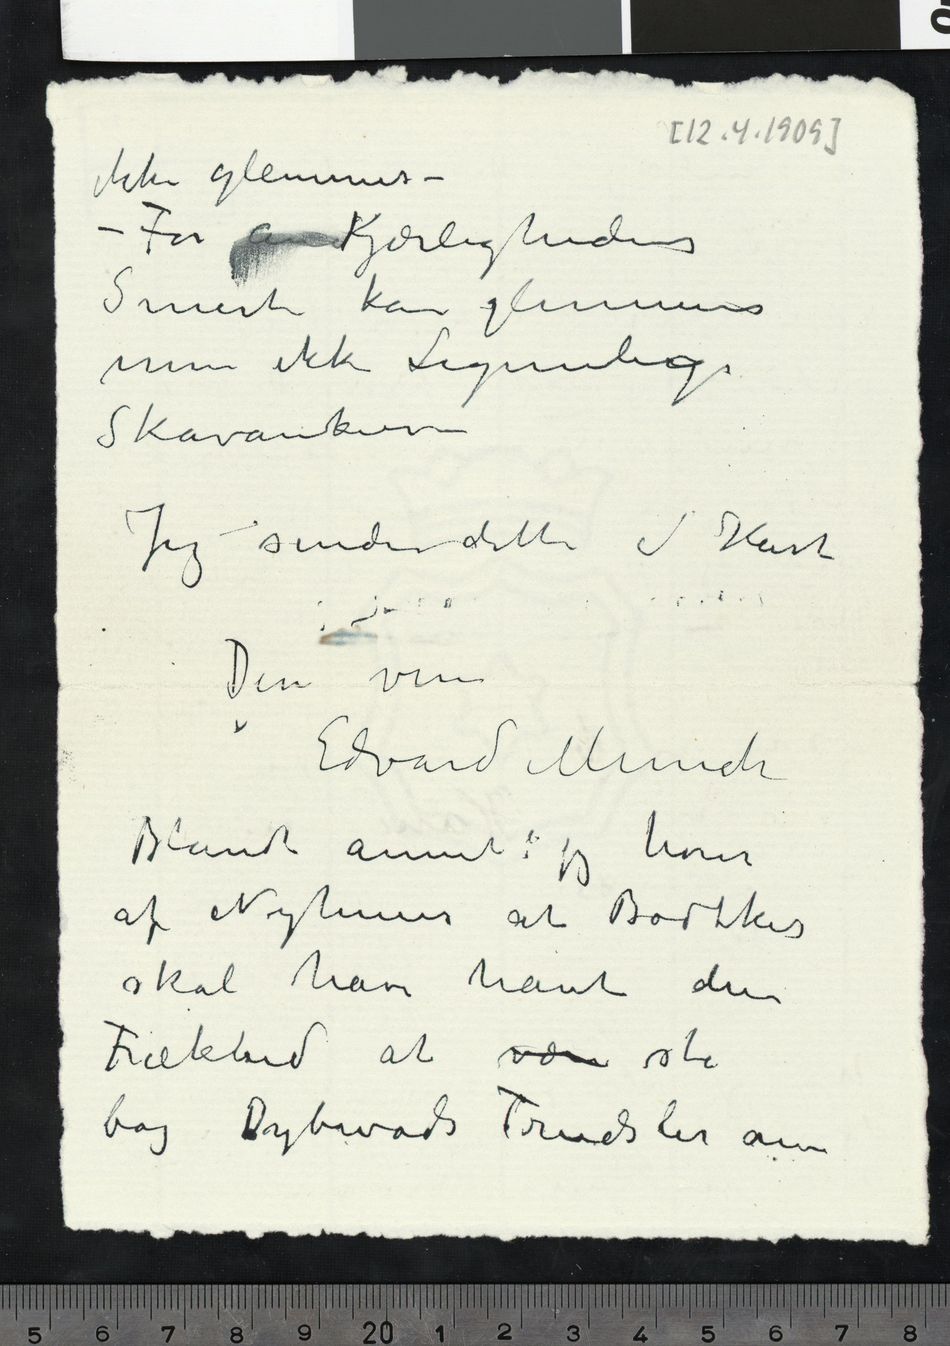 [12.4.1909]
ikke glemmes –
– For Kjærlighedens
Smerte kan glemmes
men ikke Legemlige
Skavanker
Jeg sender dette i Hast
Din ven
Edvard Munch
Blandt annet: jeg hører
af Nyhuus at Bødtker
skal have havt den
Frækhed at være stå
bag Dybwads Trudsler om